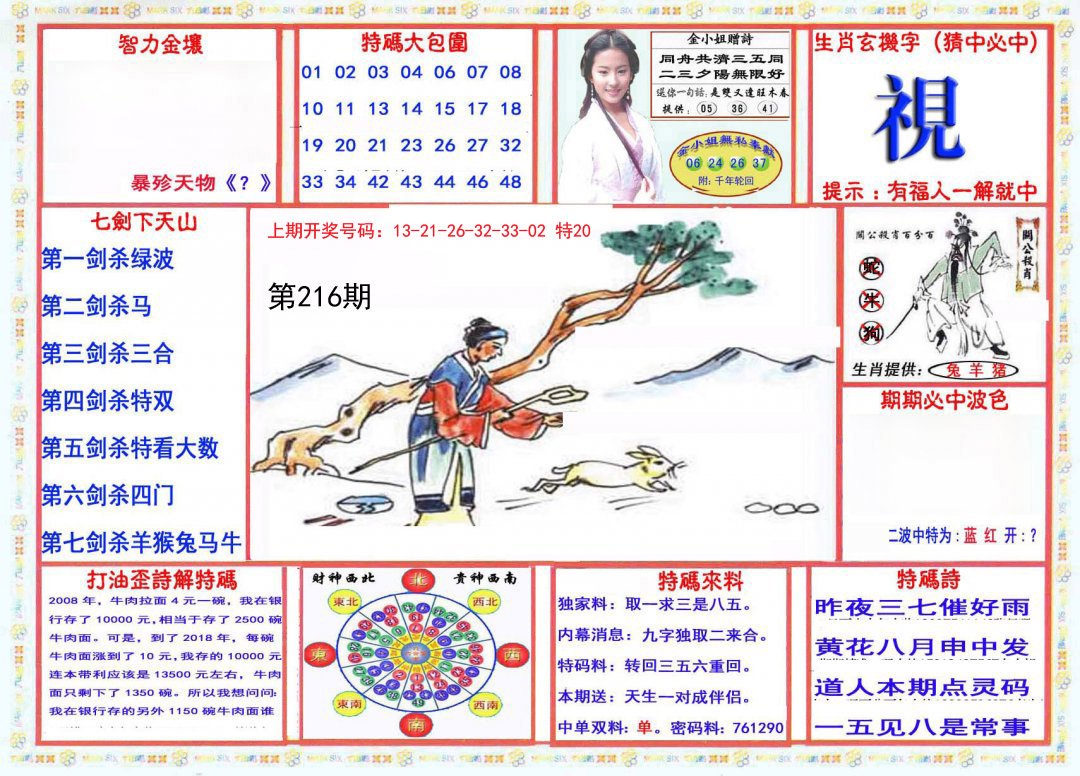 智力金壤
暴殄天物《？》
特碼大包圍
01 02 03 04 06 07 08
10 11 13 14 15 17 18
19 20 21 23 26 27 32
33 34 42 43 44 46 48
金小姐赠詩
同舟共濟三五同
二三夕陽無限好
送你一句話:是雙又逢旺木春
提供: 05 36 41
金小姐無私奉献
06 24 26 37
附:千年轮回
生肖玄機字（猜中必中）
視
提示：有福人一解就中
七劍下天山
第一剑杀绿波
第二剑杀马
第三剑杀三合
第四剑杀特双
第五剑杀特看大数
第六剑杀四门
第七剑杀羊猴兔马牛
上期开奖号码：13-21-26-32-33-02 特20
第216期
33
關公殺肖百分百
關公殺肖
蛇
牛
狗
生肖提供: 兔 羊 猪
期期必中波色
二波中特为：蓝 红 开：?
打油歪詩解特碼
2008 年，牛肉拉面 4 元一碗，我在银
行存了 10000 元,相当于存了 2500 碗
牛肉面。可是，到了 2018 年，每碗
牛肉面涨到了 10 元,我存的 10000 元
连本带利应该是 13500 元左右，牛肉
面只剩下了 1350 碗。所以我想问问:
我在银行存的另外 1150 碗牛肉面谁
財神西北
貴神西南
北
東北
西北
東
西
東南
西南
南
特碼來料
独家料：取一求三是八五。
内幕消息：九字独取二来合。
特码料：转回三五六重回。
本期送：天生一对成伴侣。
中单双料: 单。密码料: 761290
特碼詩
昨夜三七催好雨
黄花八月申中发
道人本期点灵码
一五见八是常事